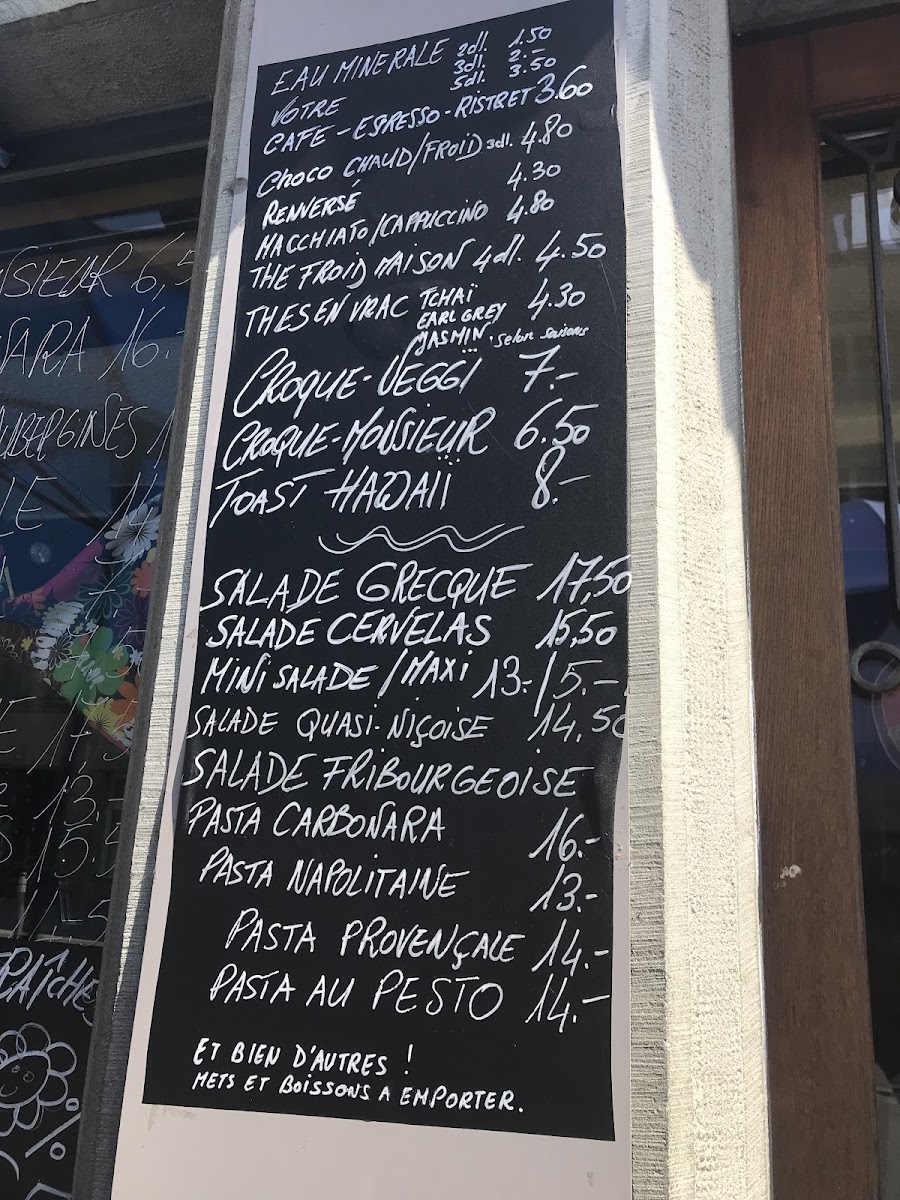 EAU MINERALE 2dl. 1.50
3dl. 2.-
5dl. 3.50
VOTRE
CAFE - ESPRESSO - RISTRET 3.60
CHOCO CHAUD/FROID 3dl. 4.80
RENVERSÉ 4.30
MACCHIATO/CAPPUCCINO 4.80
THE FROID MAISON 4dl. 4.50
THES EN VRAC TCHAÏ 4.30
EARL GREY
JASMIN . selon saisons
CROQUE-VEGGI 7.-
CROQUE-MONSIEUR 6.50
TOAST HAWAÏÏ 8.-
SALADE GRECQUE 17,50
SALADE CERVELAS 15,50
MINI SALADE / MAXI 13.-/5.-
SALADE QUASI-NIÇOISE 14,50
SALADE FRIBOURGEOISE
PASTA CARBONARA 16.-
PASTA NAPOLITAINE 13.-
PASTA PROVENÇALE 14.-
PASTA AU PESTO 14.-
ET BIEN D'AUTRES !
METS ET BOISSONS A EMPORTER.
NSIEUR 6,5
NARA 16.-
UBERGINES 1
LE 14
E 17.5
13.-
S 15.5
RAÎCHE
%